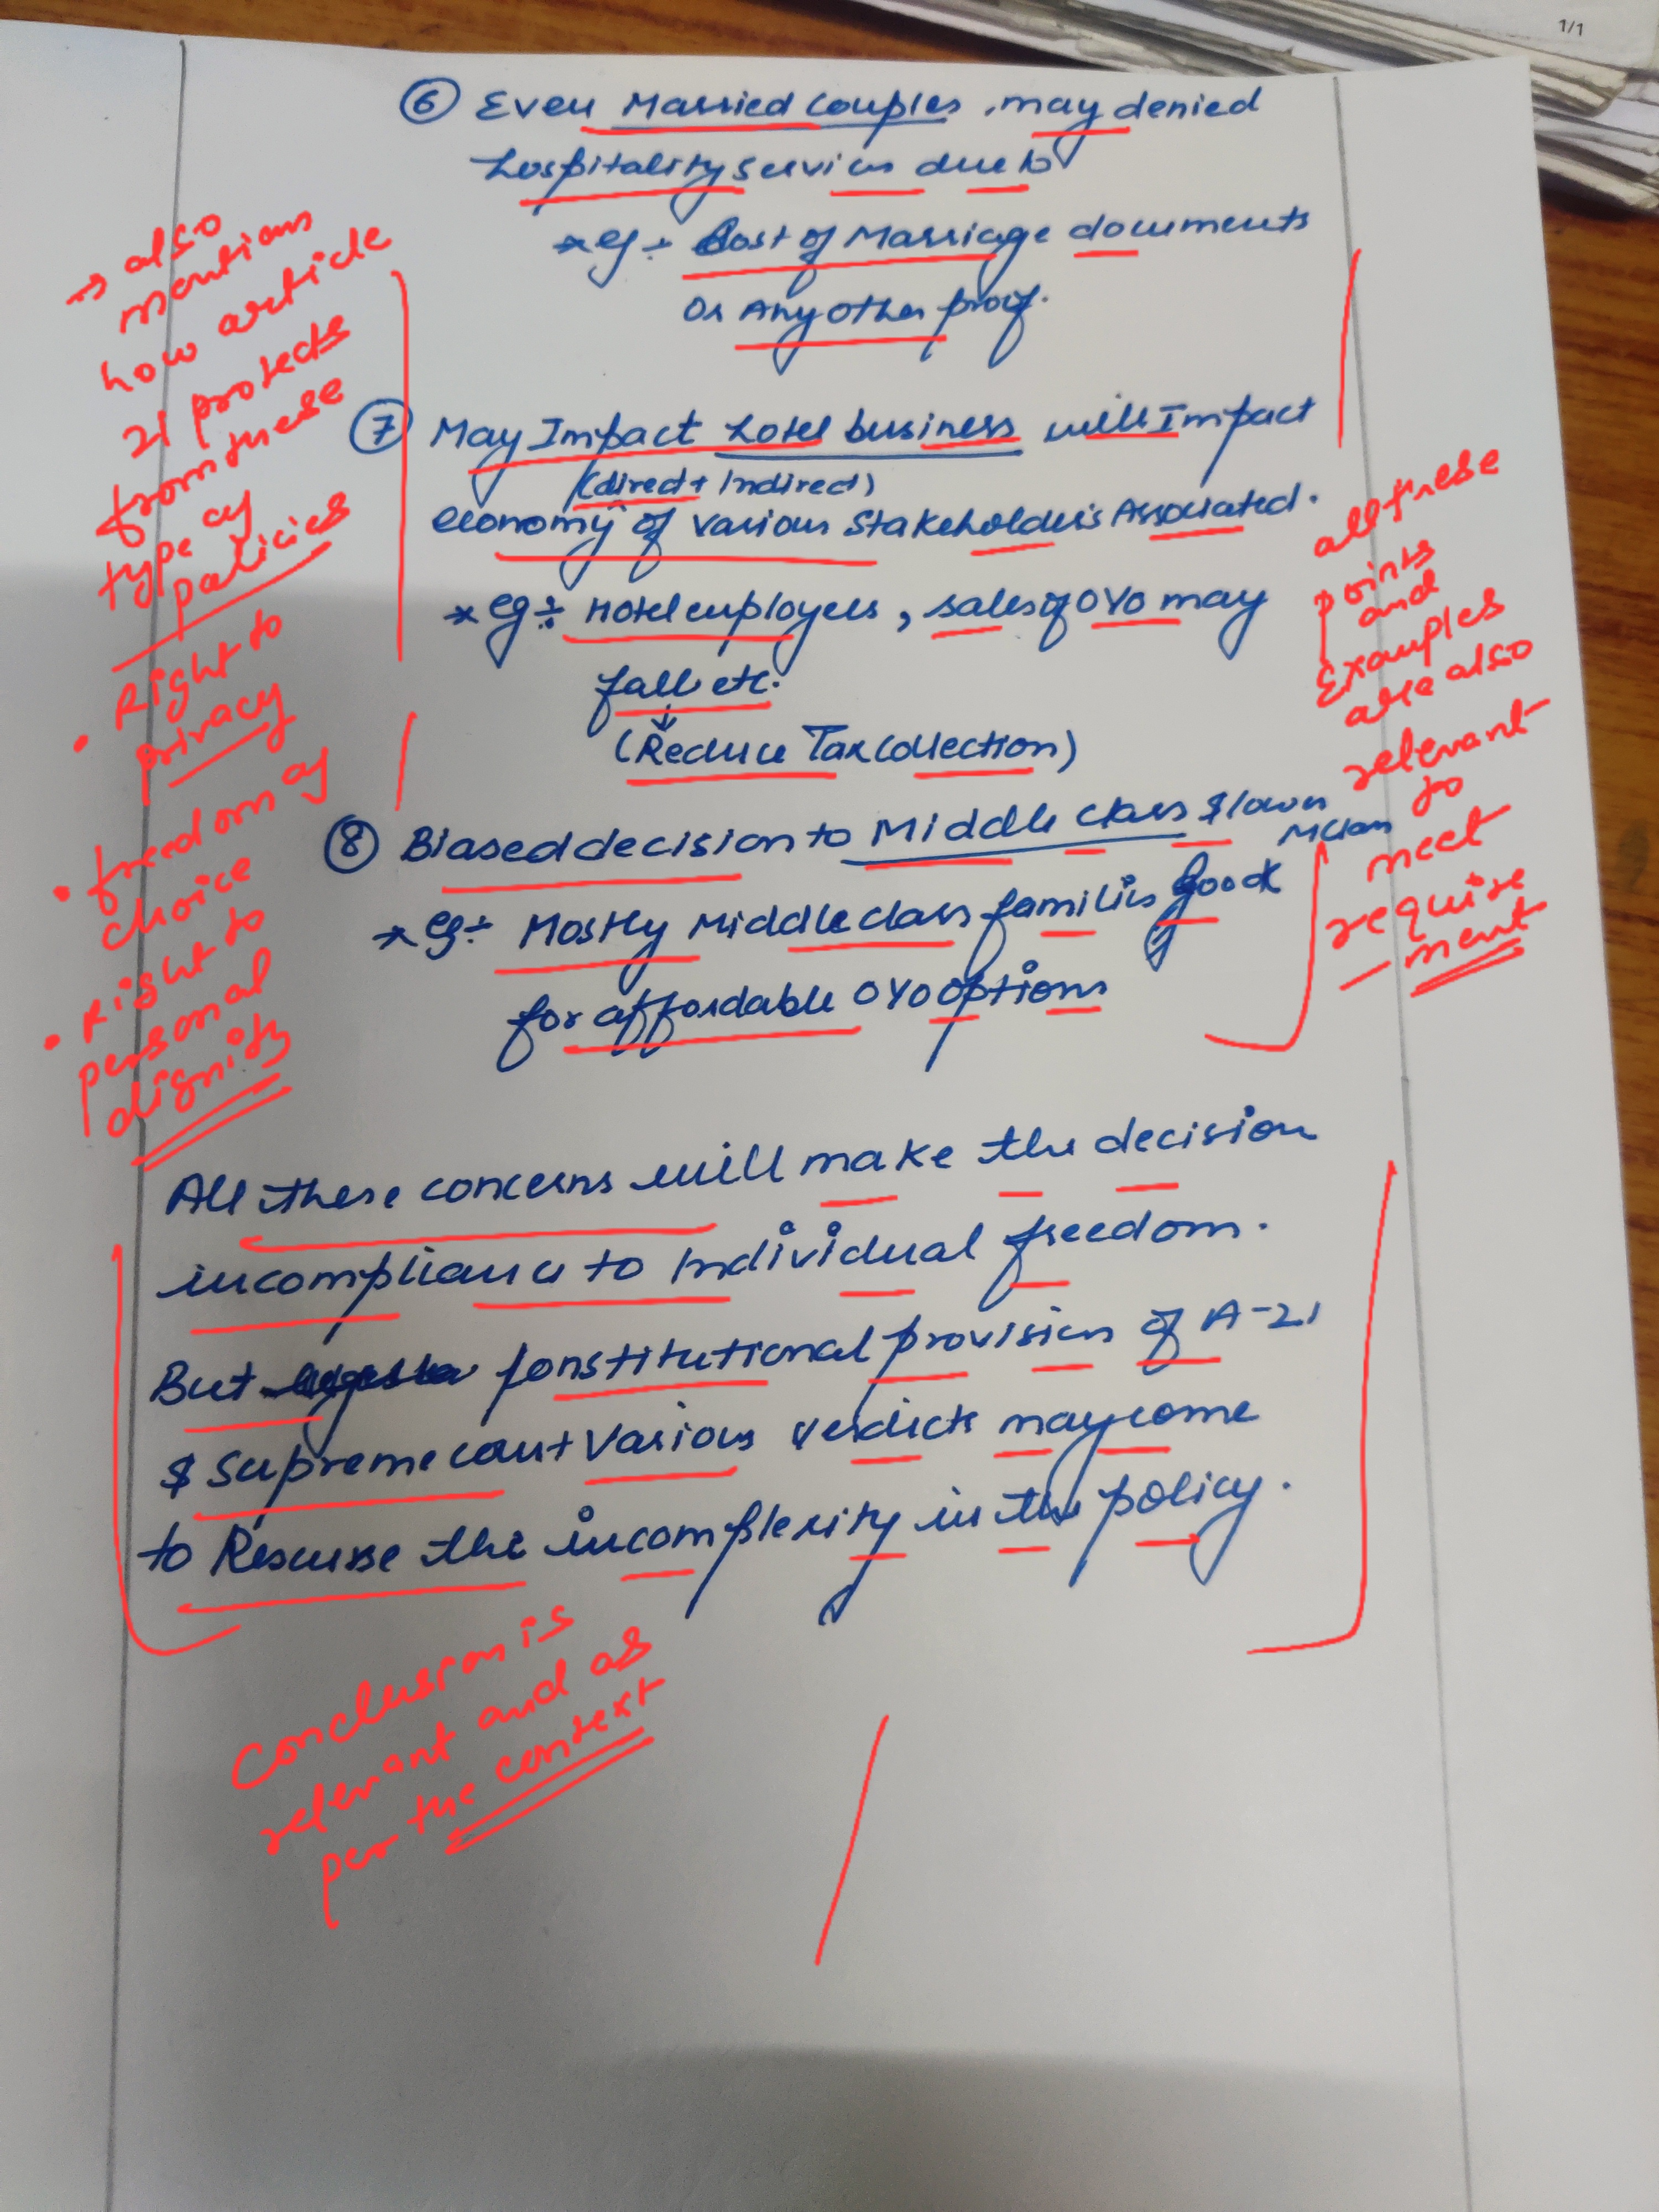 1/1
⑥ Even Married couples may denied
hospitality services due to
* eg ÷ Cost of Marriage documents
Or Any other proof.
→ also
mentions
how article
21 protects
from these
type of
policies
• Right to
privacy
• freedom of
choice
• Right to
personal
dignity
⑦ May Impact hotel business will Impact
(direct + Indirect)
economy of various stakeholders Associated.
* eg ÷ Hotel employees, sales of OYO may
fall etc.
↓
(Reduce Tax collection)
⑧ Biased decision to Middle class & lower
M class
* eg ÷ Mostly Middle class families good
for affordable OYO options
all these
points
and
Examples
are also
relevant
to
meet
require
ment
All these concerns will make the decision
incompliance to Individual freedom.
But Constitutional provision of A-21
& Supreme court various verdicts may come
to Rescue the incomplexity in the policy.
Conclusion is
relevant and as
per the context